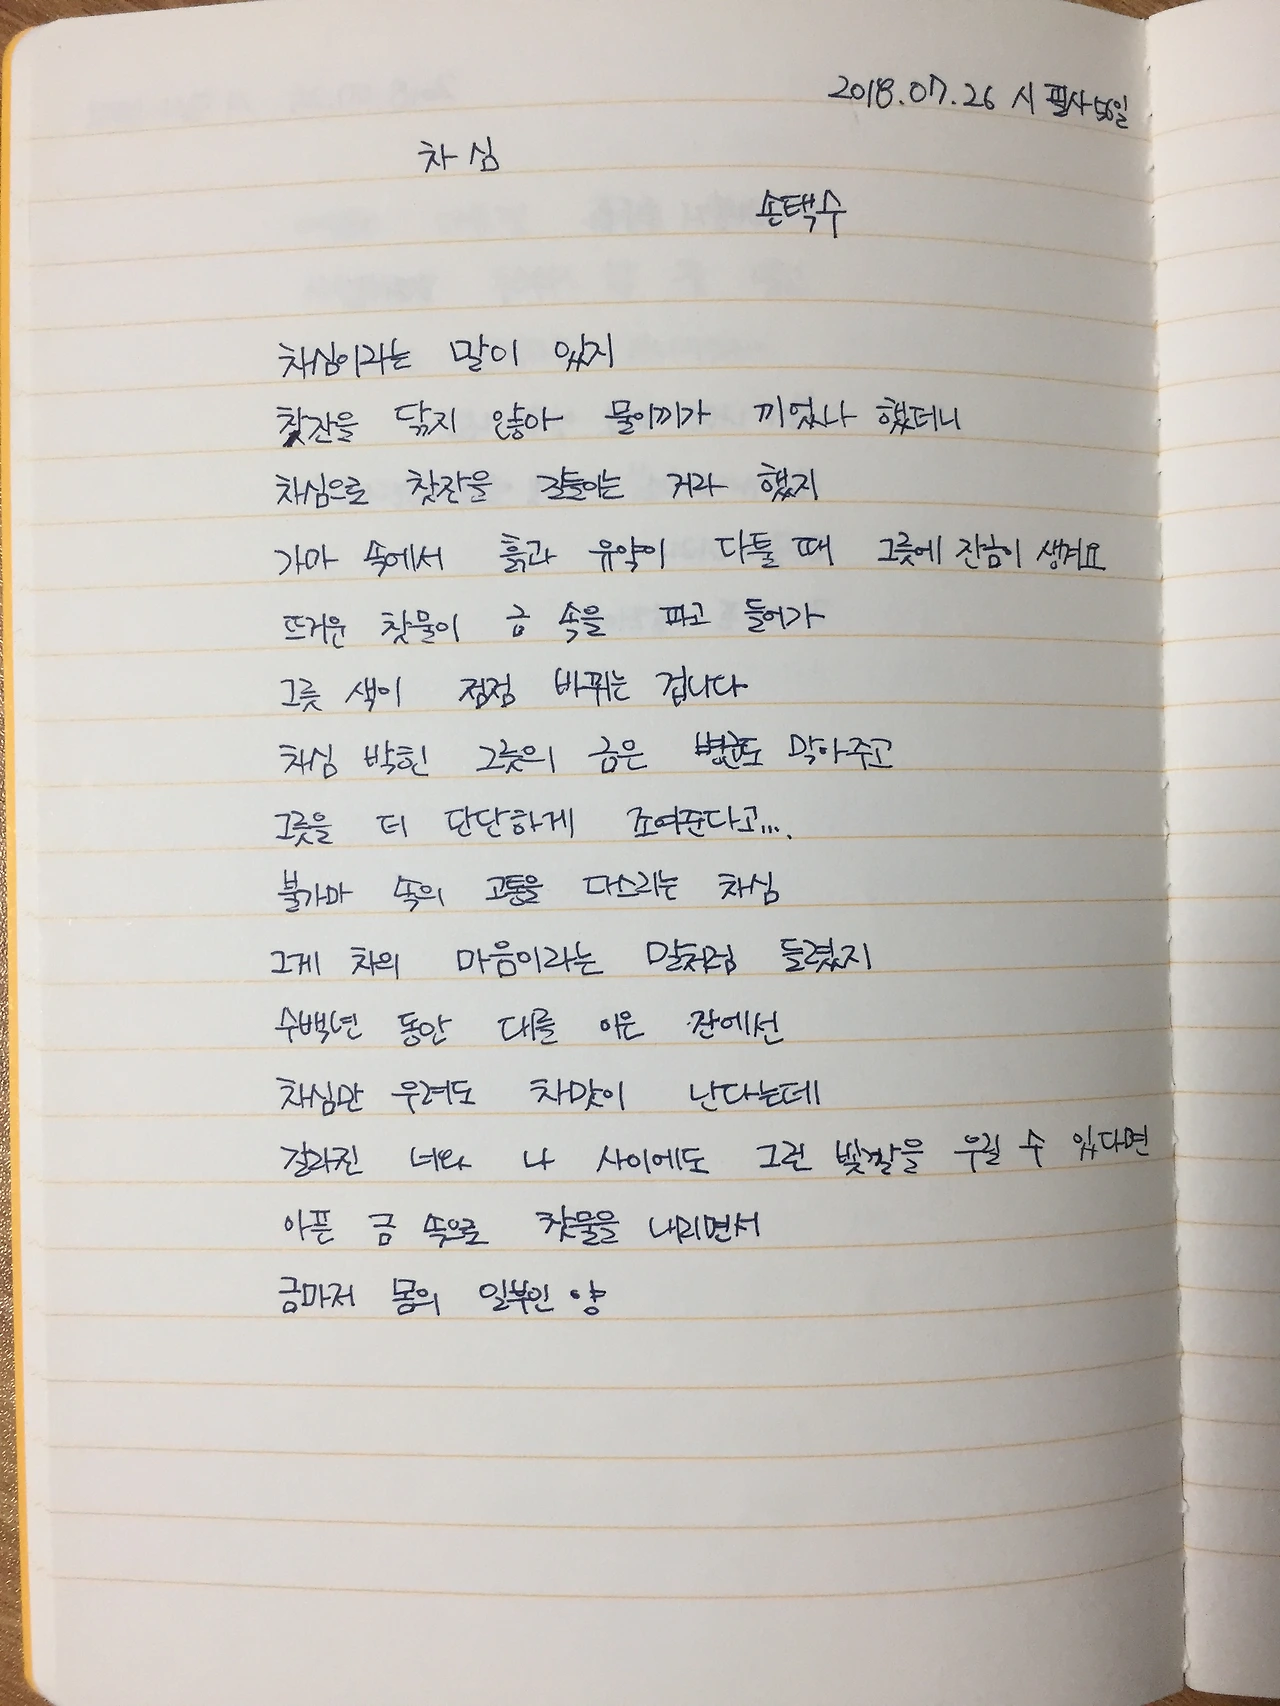 2018.07.26 시 필사 56일
차심
손택수
차심이라는 말이 있지
찻잔을 닦지 않아 물이끼가 끼었나 했더니
차심으로 찻잔을 길들이는 거라 했지
가마 속에서 흙과 유약이 다툴 때 그릇에 잔금이 생겨요
뜨거운 찻물이 금 속을 파고 들어가
그릇 색이 점점 바뀌는 겁니다
차심 박힌 그릇의 금은 병균도 막아주고
그릇을 더 단단하게 조여준다고...,
불가마 속의 고통을 다스리는 차심
그게 차의 마음이라는 말처럼 들렸지
수백년 동안 대를 이은 잔에선
차심만 우려도 차맛이 난다는데
갈라진 너와 나 사이에도 그런 빛깔을 우릴 수 있다면
아픈 금 속으로 찻물을 내리면서
금마저 몸의 일부인 양